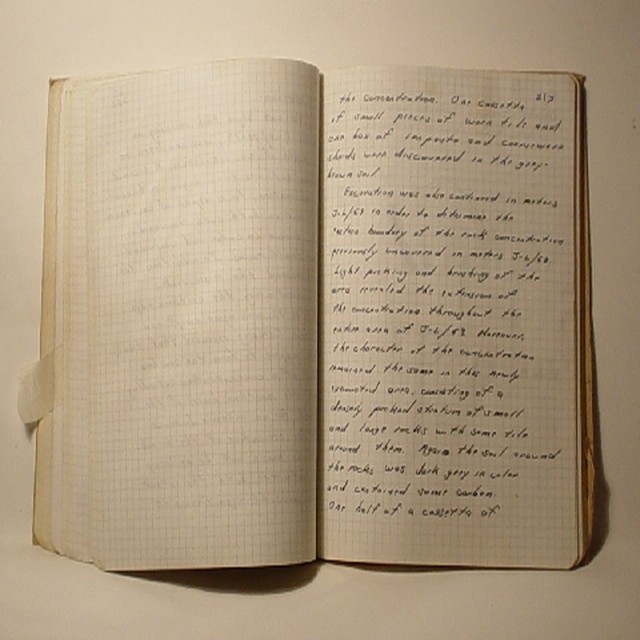 217
the concentration. One cassetta
of small pieces of worn tile and
one box of impasto and coarseware
sherds were discovered in the grey-
brown soil.
Excavation was also continued in meters
J-6/59 in order to determine the
boundary of the rock concentration
previously uncovered in meters J-6/58.
Light picking and brushing of the
area revealed the extension of
the concentration throughout the
entire area of J-6/59. Moreover,
the character of the concentration
remained the same in this newly
excavated area, consisting of a
densely packed stratum of small
and large rocks with some tile
around them. Again the soil around
the rocks was dark grey in color
and contained some carbon.
One half of a cassetta of